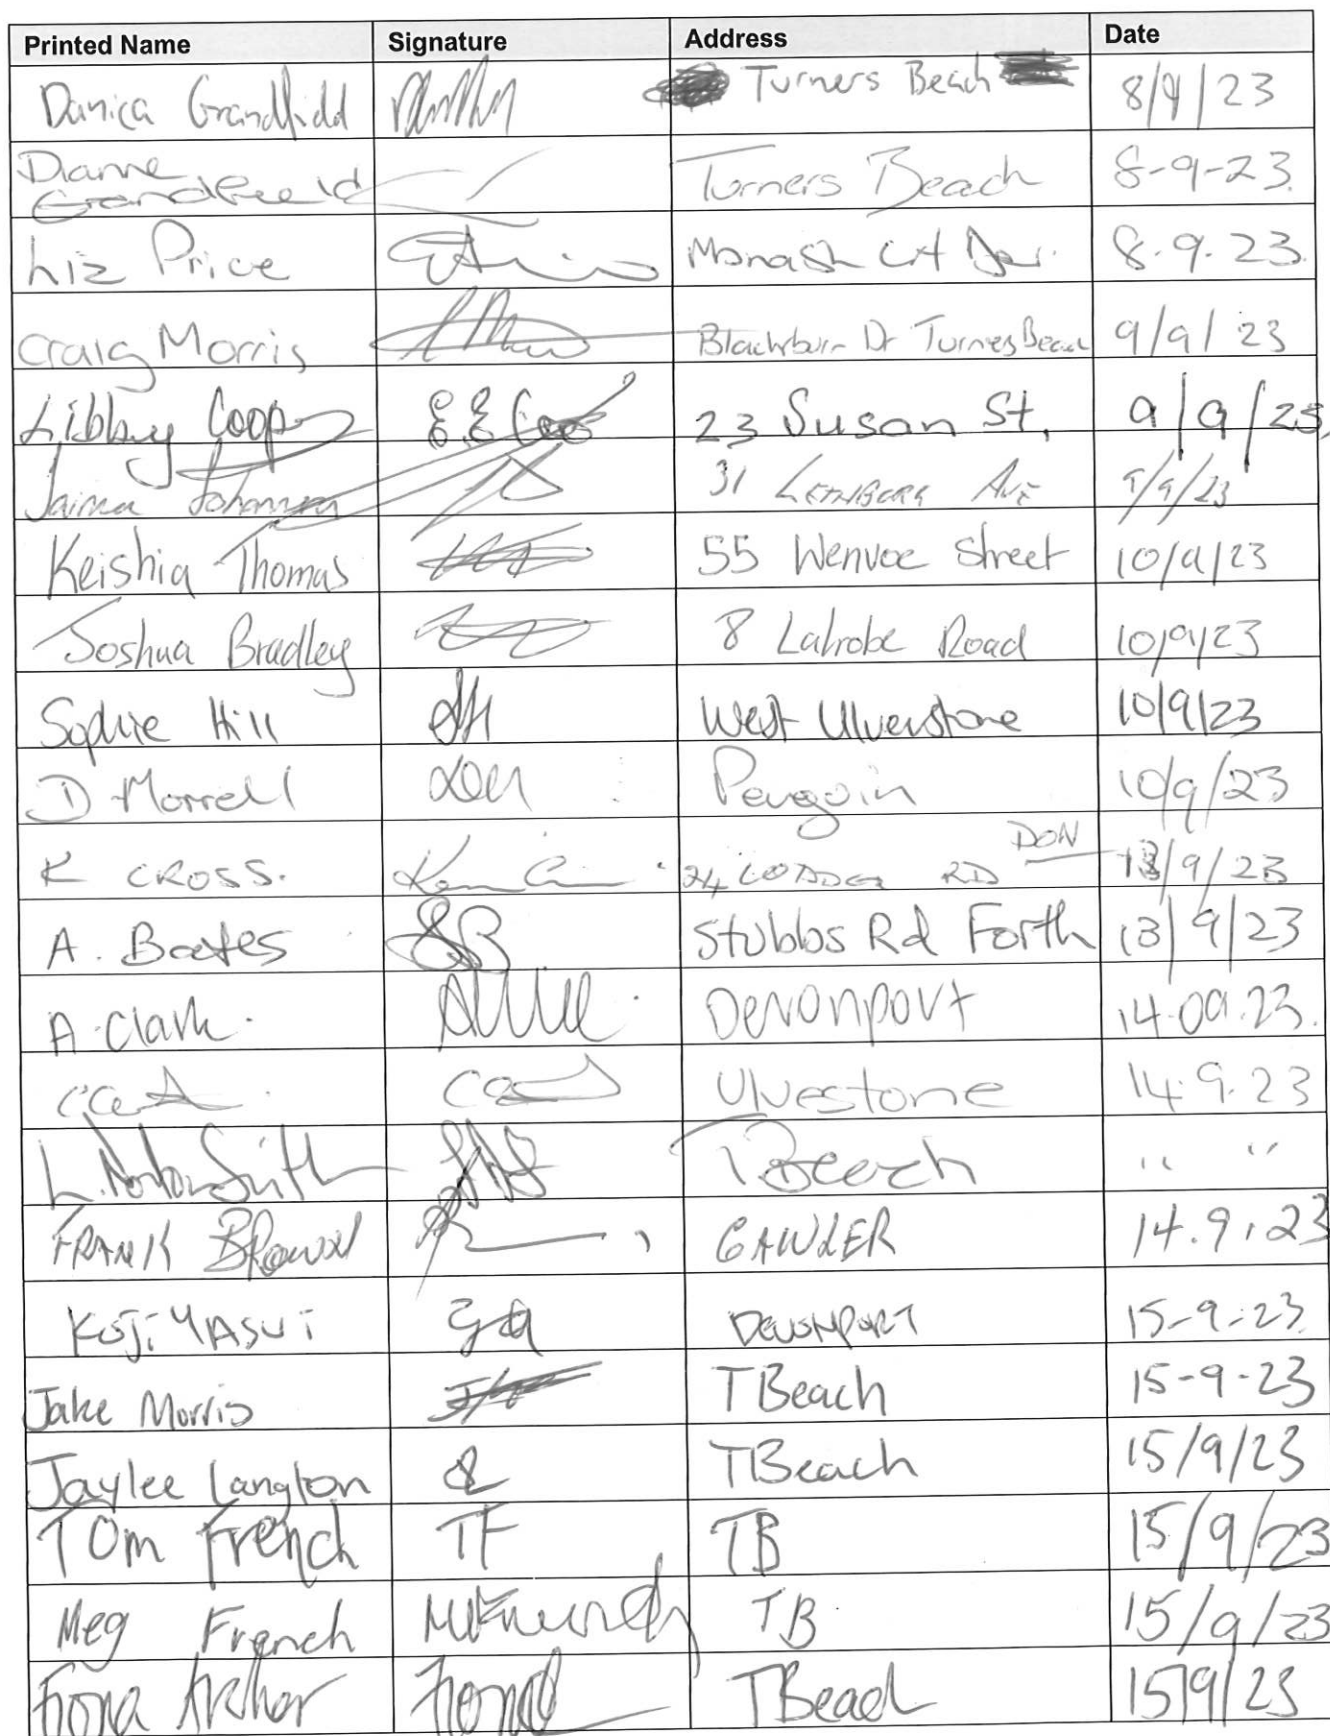 Printed Name Signature Address Date
Danica Grandfield Turners Beach 8/9/23
Dianne Grandfield Turners Beach 8-9-23.
Liz Price Monash Crt Dev. 8.9.23.
Craig Morris Blackburn Dr Turners Beach 9/9/23
Libby Cooper E.E. 23 Susan St, 9/9/23,
Jaima 31 Ave 9/9/23
Keishia Thomas 55 Wenvoe Street 10/9/23
Joshua Bradley 8 Latrobe Road 10/9/23
Sophie Hill SH West Ulverstone 10/9/23
D Morrell Penguin 10/9/23
K CROSS. 24 LODDER RD DON 13/9/23
A. Boates Stubbs Rd Forth 13/9/23
A. Clark. Devonport 14.09.23.
Ulvestone 14.9.23
L. Norton Smith TBeach " "
FRANK BROWN GAWLER 14.9.23
KOJI YASUI DEVONPORT 15-9-23
Jake Morris TBeach 15-9-23
Jaylee Langton TBeach 15/9/23
Tom French TF TB 15/9/23
Meg French TB 15/9/23
Fiona Archer Fiona TBeach 15/9/23